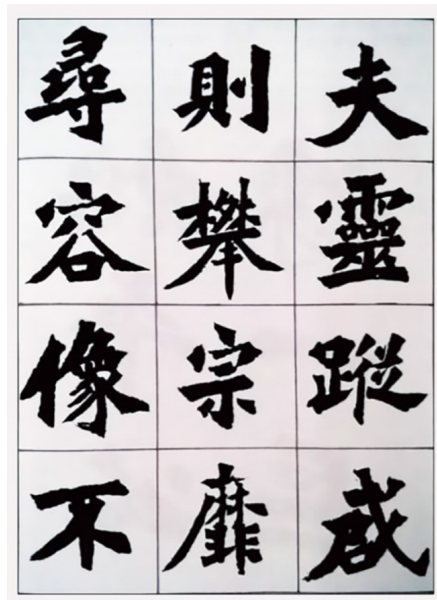 夫靈蹤
則攀宗靡
尋容像不